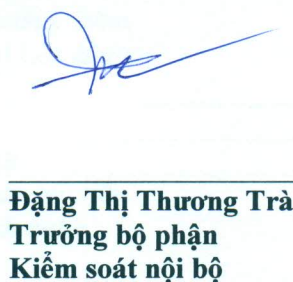 Đặng Thị Thương Trà
Trưởng bộ phận
Kiểm soát nội bộ